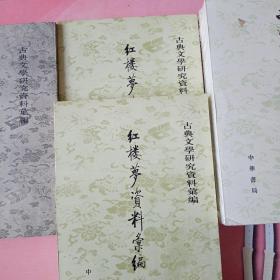 古典文學研究資料彙編
古典文學研究資料
红楼夢
古典文學研究資料彙編
红楼夢資料彙編
中
中華書局